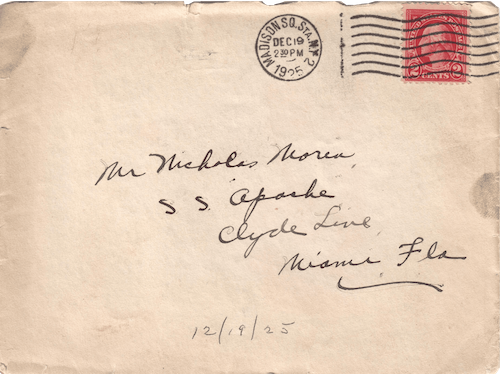 MADISON SQ. STA. N.Y. 2
DEC 19
2 30 PM
1925
2 CENTS 2
Mr Nicholas Morea
S S. Apache
Clyde Line
Miami Fla
12/19/25